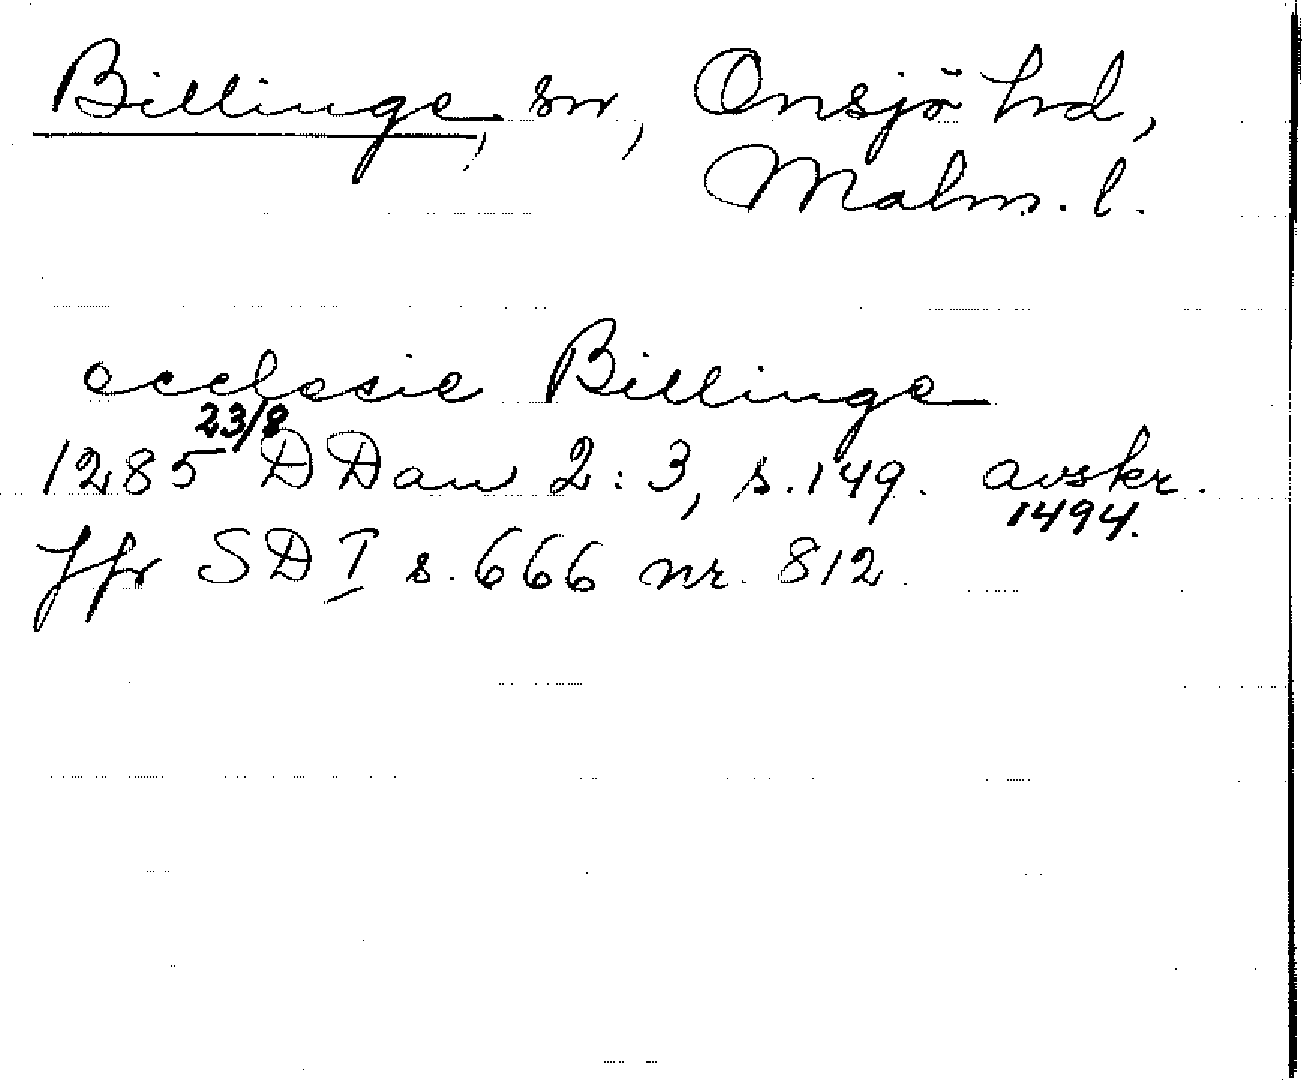 Billinge, sn, Onsjö hd,
Malm. l.
ecclesie Billinge
23/8
1285 DDan 2:3, s. 149. avskr.
1494.
Jfr SD I s. 666 nr. 812.